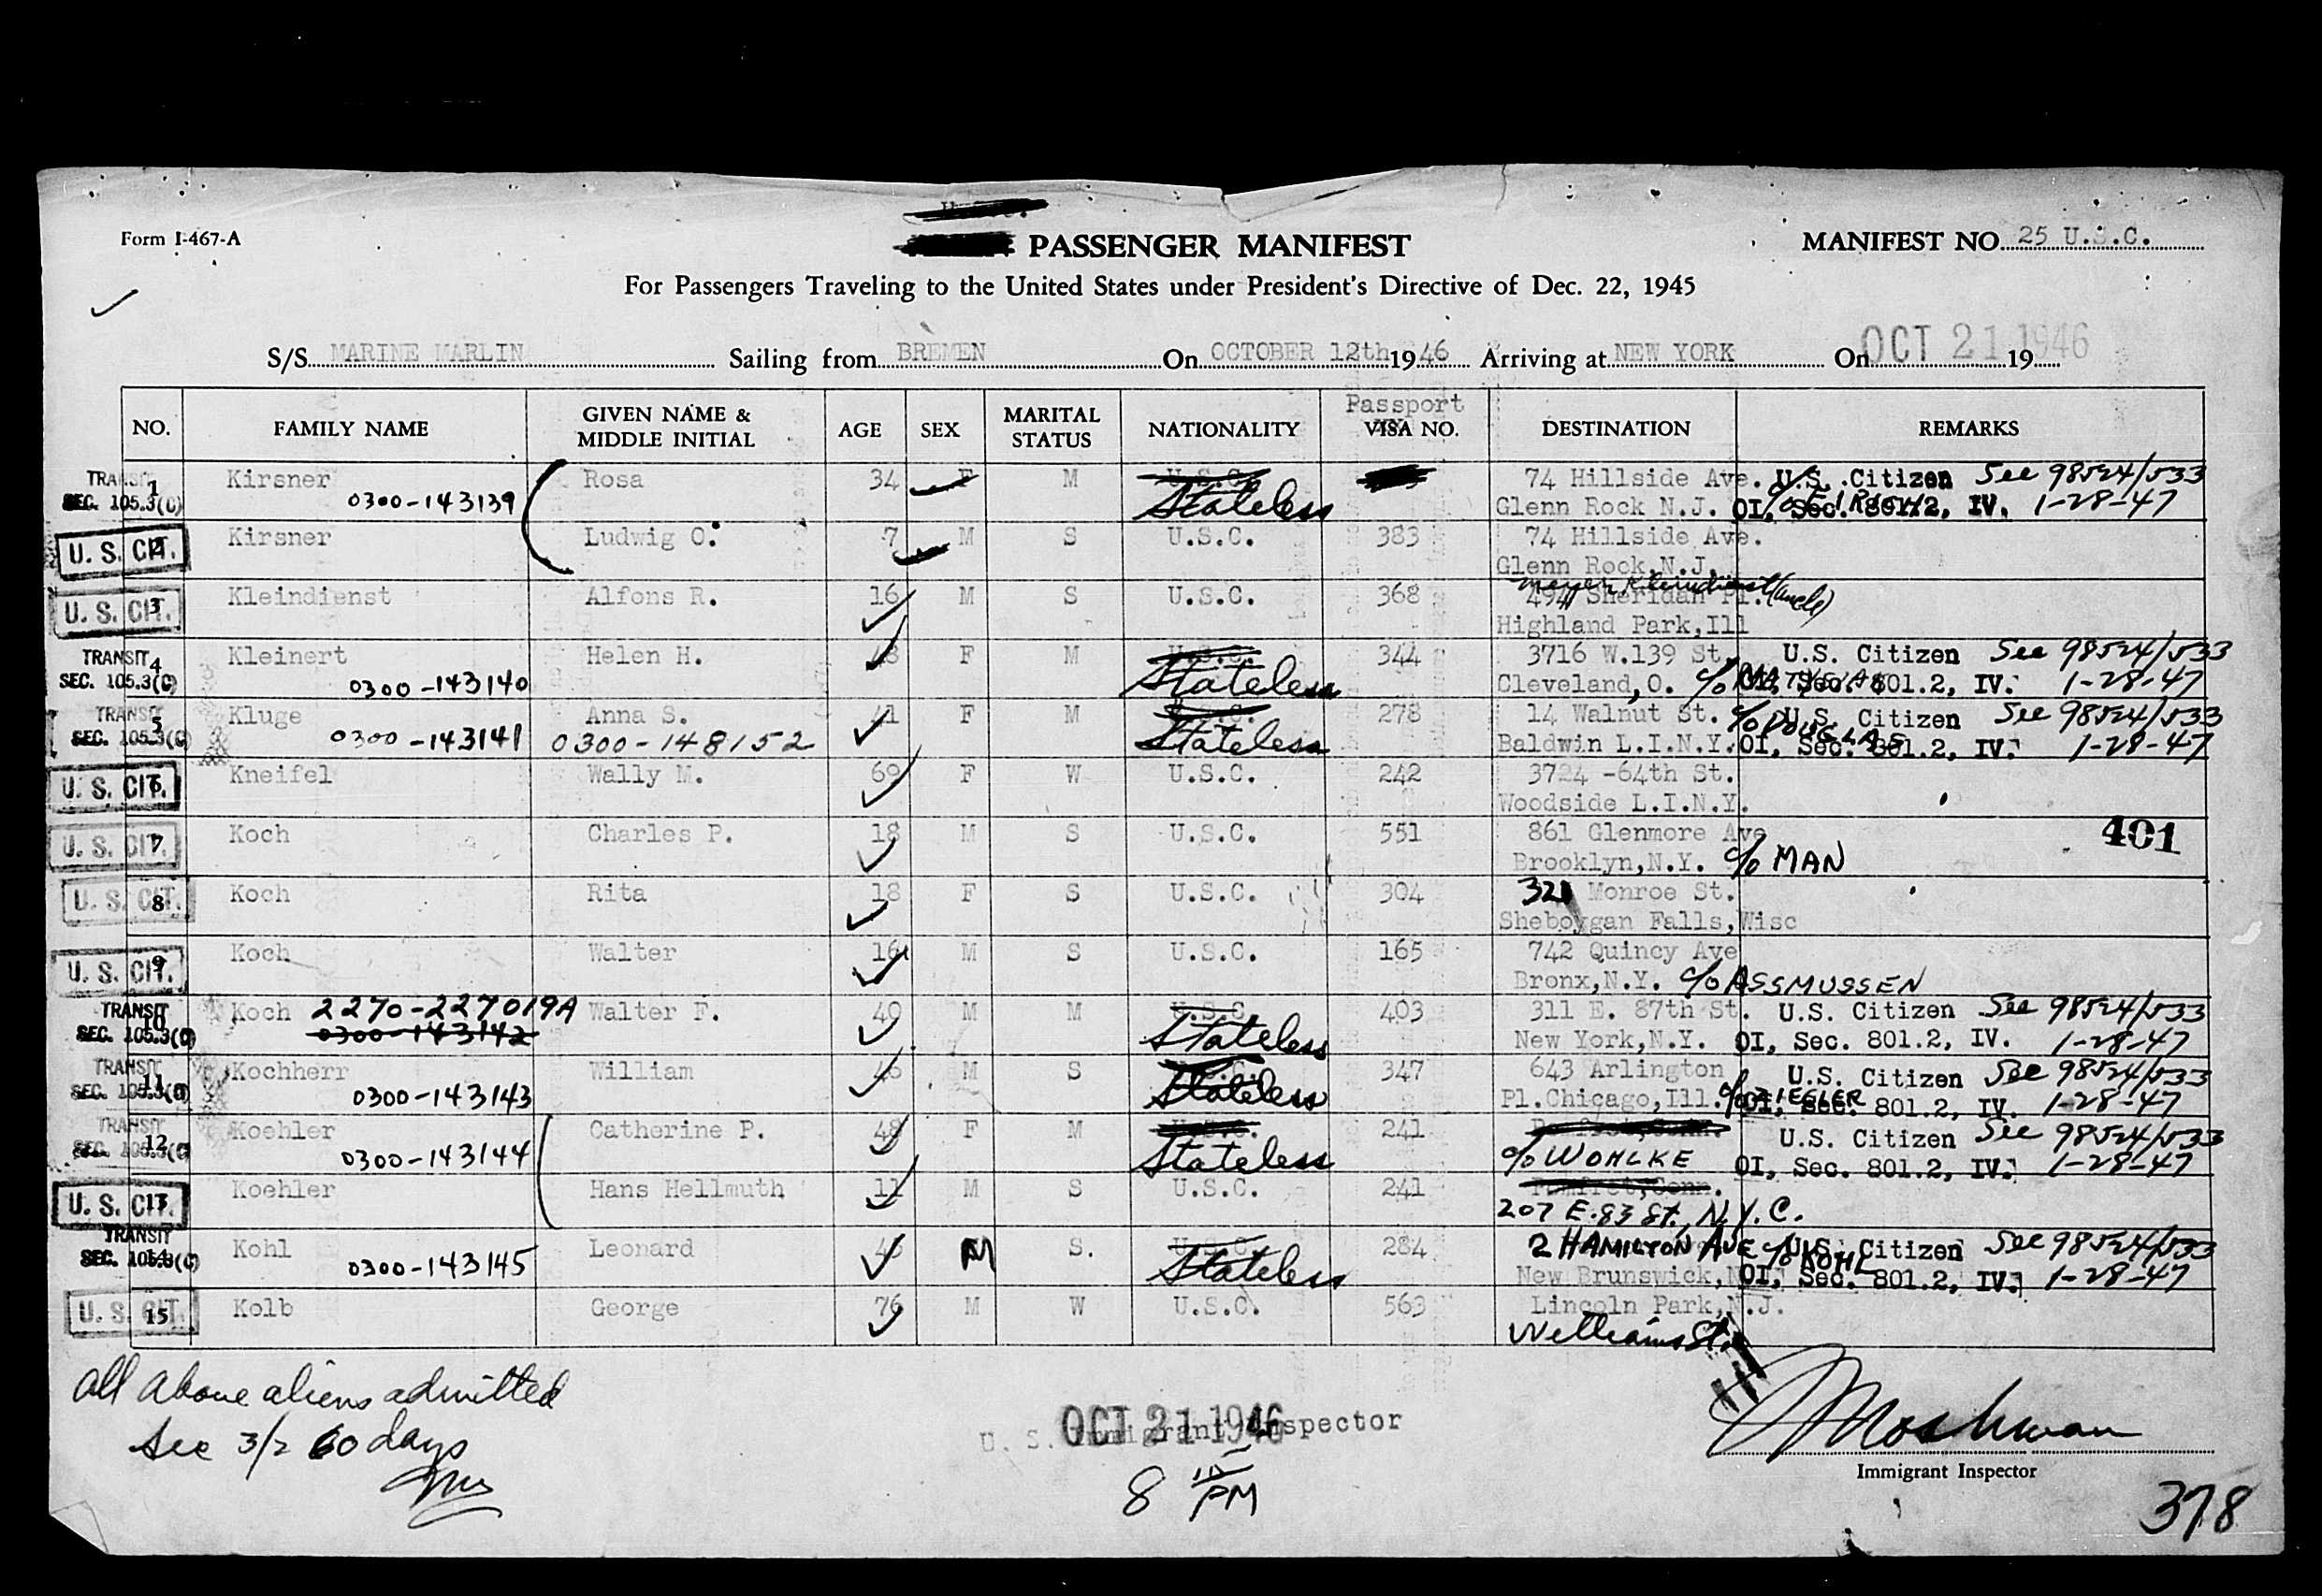 Form I-467-A
PASSENGER MANIFEST
MANIFEST NO. 25 U.S.C.
For Passengers Traveling to the United States under President's Directive of Dec. 22, 1945
S/S MARINE MARLIN Sailing from BREMEN On OCTOBER 12th 19 46 Arriving at NEW YORK On OCT 21 1946 19
NO. FAMILY NAME GIVEN NAME & MIDDLE INITIAL AGE SEX MARITAL STATUS NATIONALITY Passport VISA NO. DESTINATION REMARKS
TRANSIT 1 Kirsner Rosa 34 F M U.S.C. 74 Hillside Ave. U.S. Citizen See 98524/533
SEC. 105.3(C) 0300-143139 Stateless Glenn Rock N.J. OI, Sec. 801.2, IV. 1-28-47
U. S. CIT. 2 Kirsner Ludwig O. 7 M S U.S.C. 383 74 Hillside Ave.
Glenn Rock, N.J.
U. S. CIT. 3 Kleindienst Alfons R. 16 M S U.S.C. 368 Kleindienst (uncle)
494 Sheridan Pl.
Highland Park, Ill
TRANSIT 4 Kleinert Helen H. 48 F M U.S.C. 344 3716 W.139 St. U.S. Citizen See 98524/533
SEC. 105.3(C) 0300-143140 Stateless Cleveland, O. c/o OI, Sec. 801.2, IV. 1-28-47
TRANSIT 5 Kluge Anna S. 41 F M U.S.C. 278 14 Walnut St. c/o DOUGLAS U.S. Citizen See 98524/533
SEC. 105.3(C) 0300-143141 0300-148152 Stateless Baldwin L.I.N.Y. OI, Sec. 801.2, IV. 1-28-47
U. S. CIT. 6 Kneifel Wally M. 69 F W U.S.C. 242 3724 -64th St.
Woodside L.I.N.Y.
U. S. CIT. 7 Koch Charles P. 18 M S U.S.C. 551 861 Glenmore Ave 401
Brooklyn, N.Y. c/o MAN
U. S. CIT. 8 Koch Rita 18 F S U.S.C. 304 321 Monroe St.
Sheboygan Falls, Wisc
U. S. CIT. 9 Koch Walter 16 M S U.S.C. 165 742 Quincy Ave
Bronx, N.Y. c/o ASSMUSSEN
TRANSIT 10 Koch 2270-227019A Walter F. 40 M M U.S.C. 403 311 E. 87th St. U.S. Citizen See 98524/533
SEC. 105.3(C) 0300-143142 Stateless New York, N.Y. OI, Sec. 801.2, IV. 1-28-47
TRANSIT 11 Kochherr William 46 M S 347 643 Arlington U.S. Citizen See 98524/533
SEC. 105.3(C) 0300-143143 Stateless Pl. Chicago, Ill. c/o ZIEGLER OI, Sec. 801.2, IV. 1-28-47
TRANSIT 12 Koehler Catherine P. 48 F M U.S.C. 241 Pomfret, Conn. U.S. Citizen See 98524/533
SEC. 105.3(C) 0300-143144 Stateless c/o WOHLKE OI, Sec. 801.2, IV. 1-28-47
U. S. CIT. 13 Koehler Hans Hellmuth 11 M S U.S.C. 241 Pomfret, Conn.
207 E. 83 St., N.Y.C.
TRANSIT 14 Kohl Leonard 43 M S. U.S.C. 284 2 HAMILTON AVE c/o KOHL U.S. Citizen See 98524/533
SEC. 105.3(C) 0300-143145 Stateless New Brunswick, OI, Sec. 801.2, IV. 1-28-47
U. S. CIT. 15 Kolb George 76 M W U.S.C. 563 Lincoln Park, N.J.
Williams St.
all above aliens admitted
sec 3/2 60 days
OCT 21 1946
U. S. Immigrant Inspector
8 15 PM
Immigrant Inspector
378